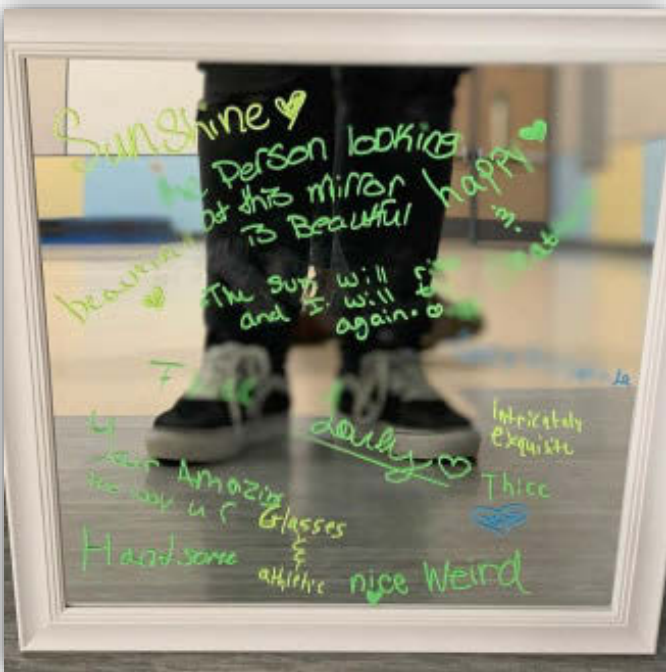 Sunshine
The Person looking
at this mirror
is Beautiful
happy
beautiful
The sun will rise
and I will
again.
Your Amazing
the way u r
Lovely
Intricately
exquisite
Thicc
Handsome
Glasses
&
athletic
nice Weird